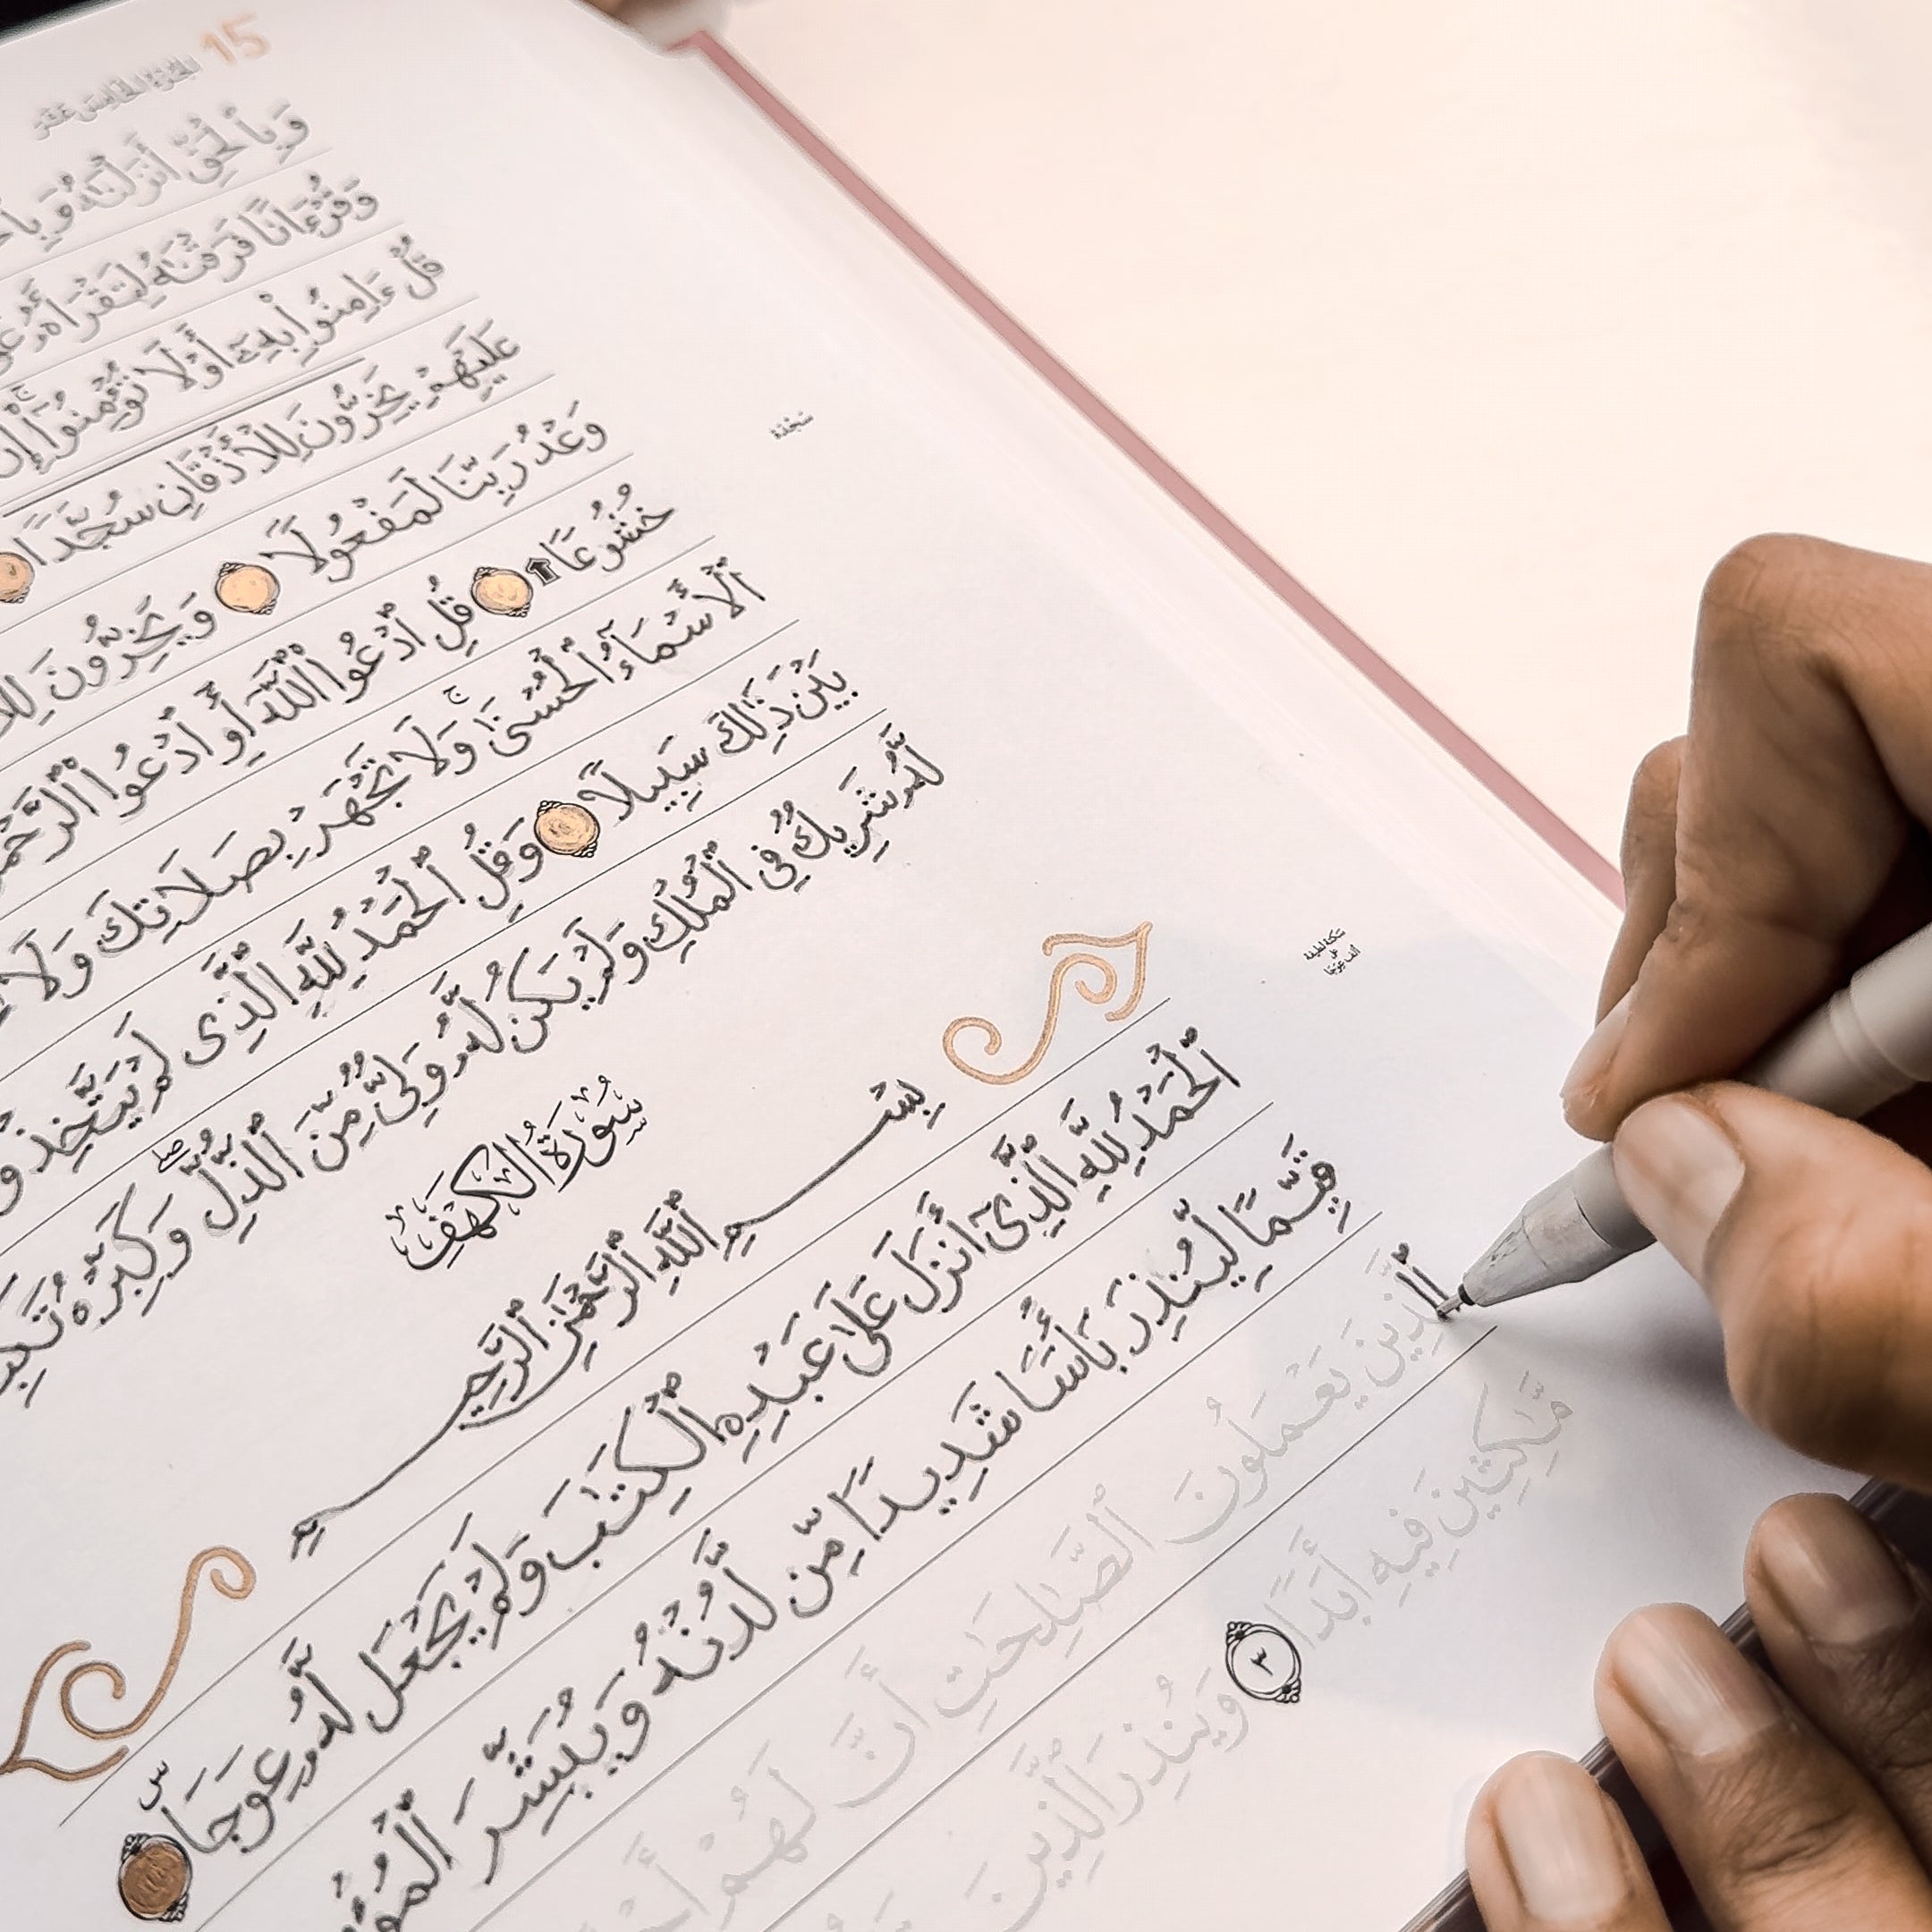 15
الجزء الخامس عشر
وَبِٱلْحَقِّ أَنزَلْنَٰهُ وَبِٱلْحَ
وَقُرْءَانًا فَرَقْنَٰهُ لِتَقْرَأَهُۥ عَ
قُلْ ءَامِنُوا۟ بِهِۦٓ أَوْ لَا تُؤْمِنُوٓا۟ ۚ إِنَّ
عَلَيْهِمْ يَخِرُّونَ لِلْأَذْقَانِ سُجَّدًا
سَجْدَة
وَعْدُ رَبِّنَا لَمَفْعُولًا وَيَخِرُّونَ لِلْأَ
خُشُوعًا قُلِ ٱدْعُوا۟ ٱللَّهَ أَوِ ٱدْعُوا۟ ٱلرَّحْمَ
ٱلْأَسْمَآءُ ٱلْحُسْنَىٰ ۚ وَلَا تَجْهَرْ بِصَلَاتِكَ وَلَا
بَيْنَ ذَٰلِكَ سَبِيلًا وَقُلِ ٱلْحَمْدُ لِلَّهِ ٱلَّذِى لَمْ يَتَّخِذْ وَ
لَّهُۥ شَرِيكٌ فِى ٱلْمُلْكِ وَلَمْ يَكُن لَّهُۥ وَلِىٌّ مِّنَ ٱلذُّلِّ ۖ وَكَبِّرْهُ تَكْبِ
سُورَةُ الكَهْفِ
بِسْمِ ٱللَّهِ ٱلرَّحْمَٰنِ ٱلرَّحِيمِ
سكتة لطيفة
على
ألف عوجا
ٱلْحَمْدُ لِلَّهِ ٱلَّذِىٓ أَنزَلَ عَلَىٰ عَبْدِهِ ٱلْكِتَٰبَ وَلَمْ يَجْعَل لَّهُۥ عِوَجَاۜ
قَيِّمًا لِّيُنذِرَ بَأْسًا شَدِيدًا مِّن لَّدُنْهُ وَيُبَشِّرَ ٱلْمُؤْ
ٱلَّذِينَ يَعْمَلُونَ ٱلصَّٰلِحَٰتِ أَنَّ لَهُمْ أَجْ
مَّٰكِثِينَ فِيهِ أَبَدًا ٣ وَيُنذِرَ ٱلَّذِينَ